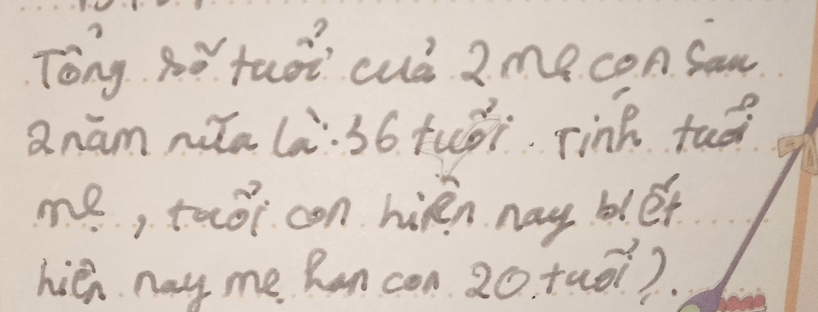 Tổng số tuổi của 2 mẹ con sau
2 năm nữa là: 36 tuổi. Tính tuổi
mẹ, tuổi con hiện nay biết
hiện nay mẹ hơn con 20 tuổi?.